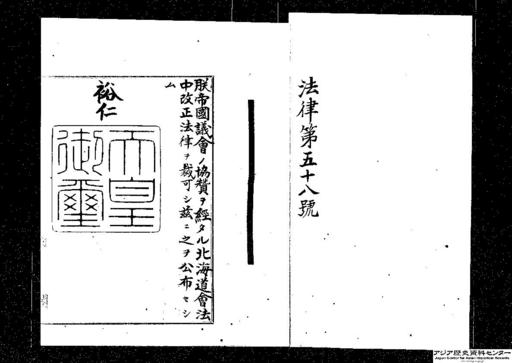 法律第五十八號
朕帝國議會ノ協賛ヲ經タル北海道會法
中改正法律ヲ裁可シ茲ニ之ヲ公布セシ
ム
裕仁
天皇
御璽
アジア歴史資料センター
Japan Center for Asian Historical Records